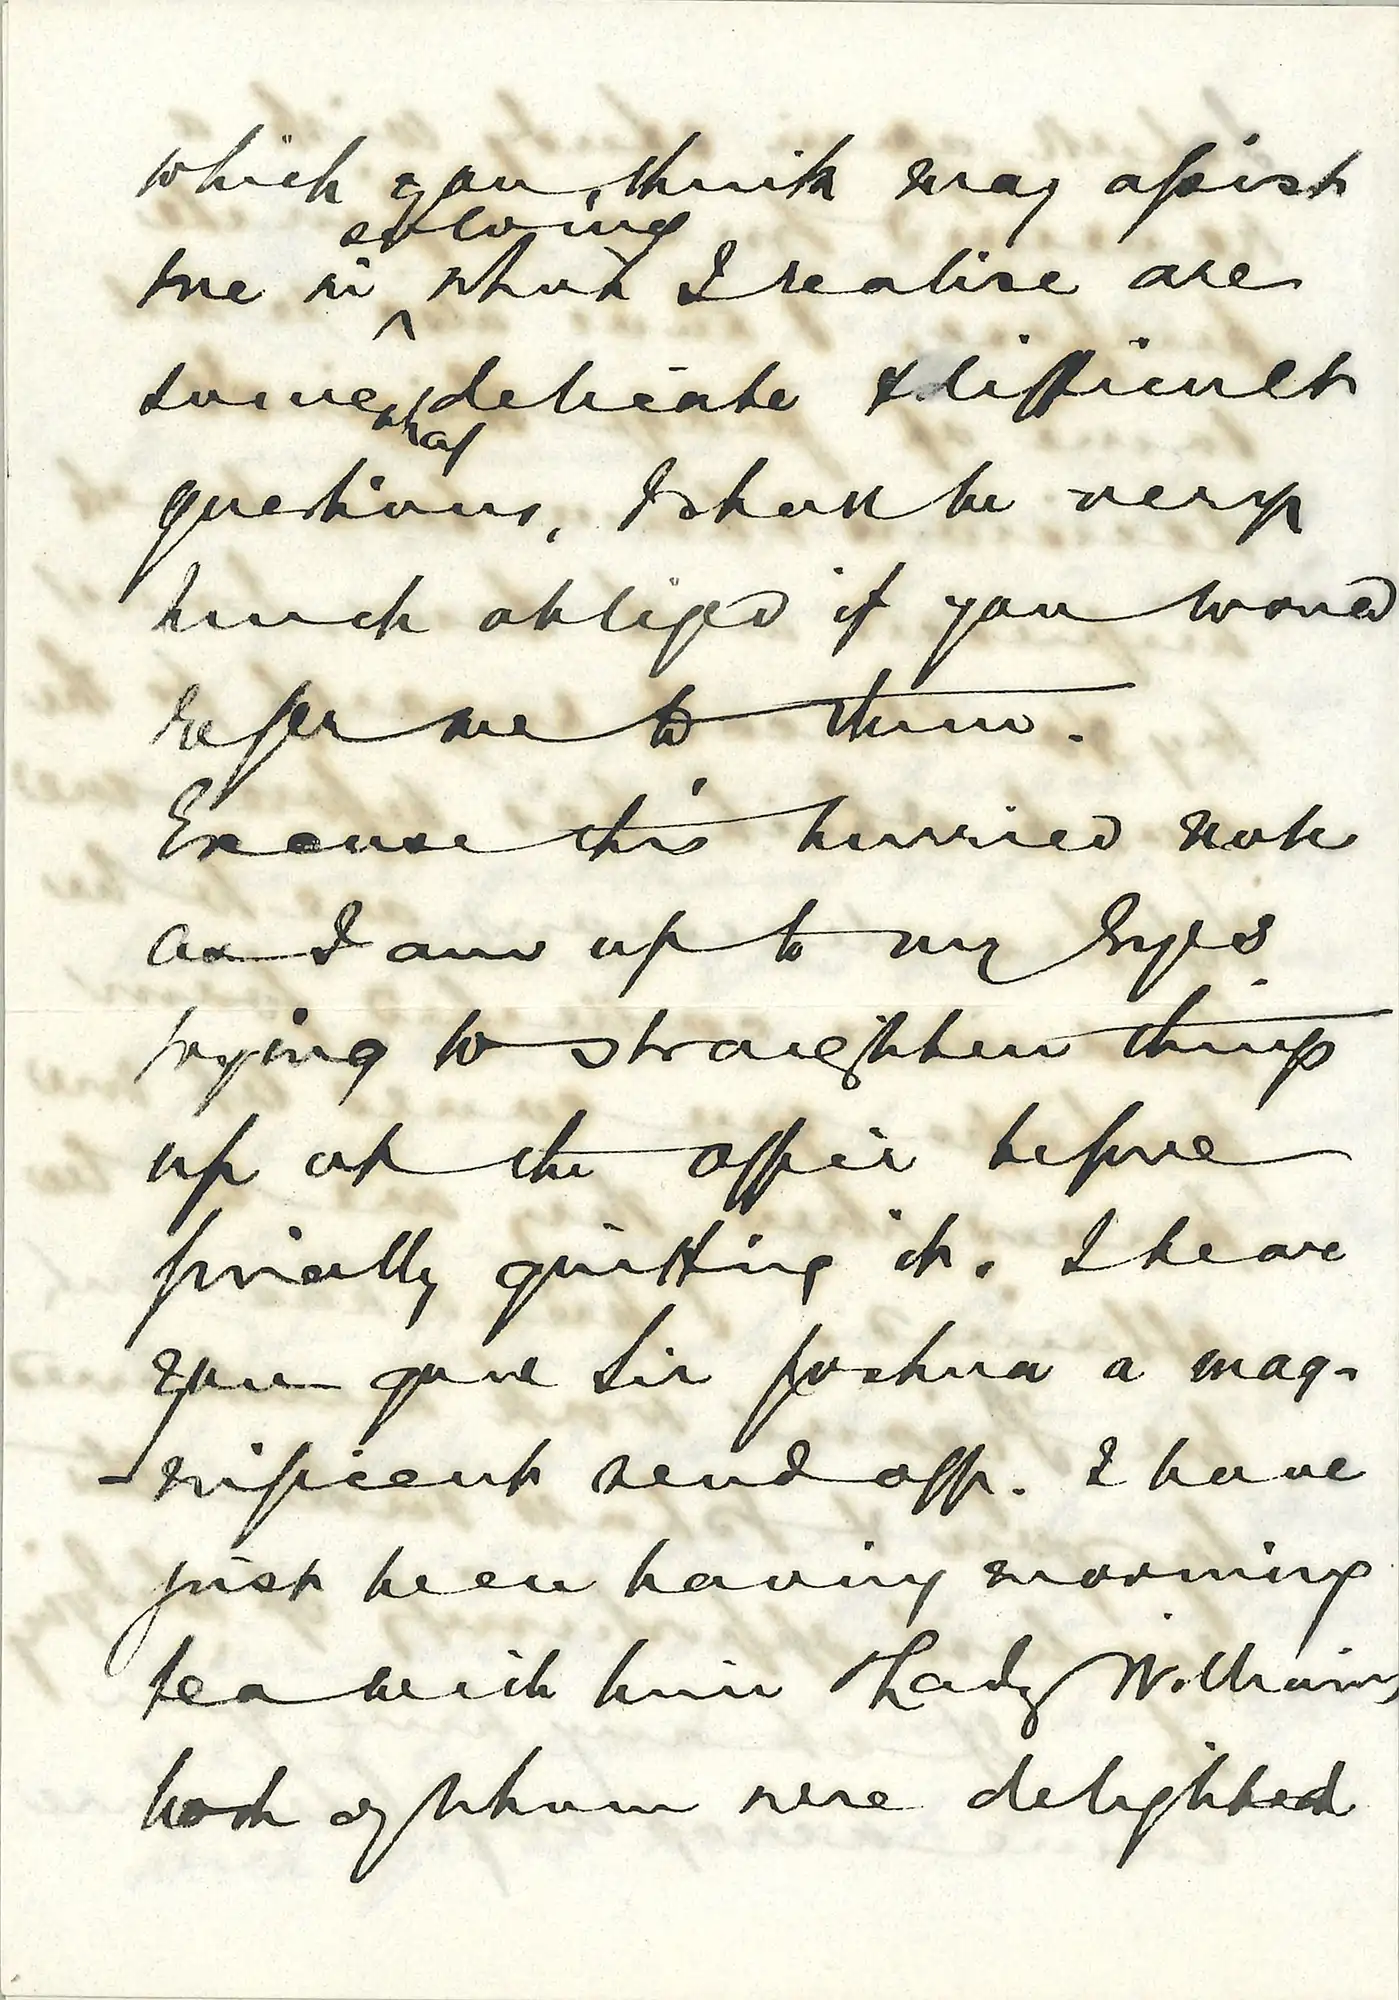 which you think may assist
me in ^ solving what I realise are
somewhat delicate & difficult
questions, I shall be very
much obliged if you would
refer me to them.
Excuse this hurried note
as I am up to my Eyes
trying to straighten things
up at the office before
finally quitting it. I hear
you gave Sir Joshua a mag-
-nificent send off. I have
just been having morning
tea with him & Lady Williams
both of whom were delighted